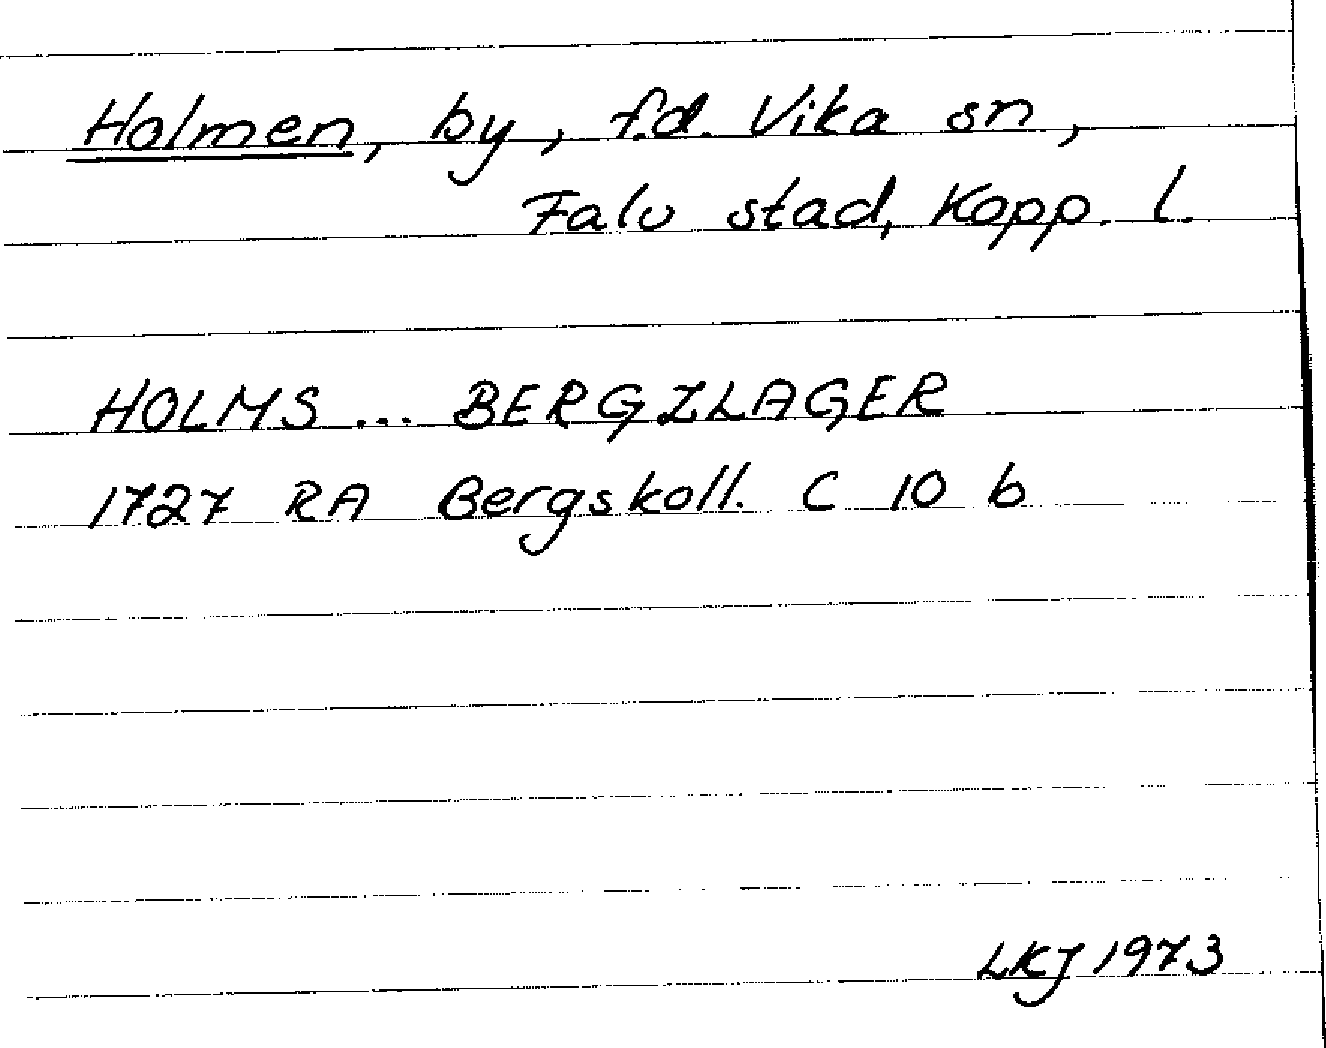 Holmen, by, f.d. Vika sn,
Falu stad, Kopp. l.
HOLMS ... BERGZLAGER
1727 RA Bergskoll. C 10 b
LKJ 1973